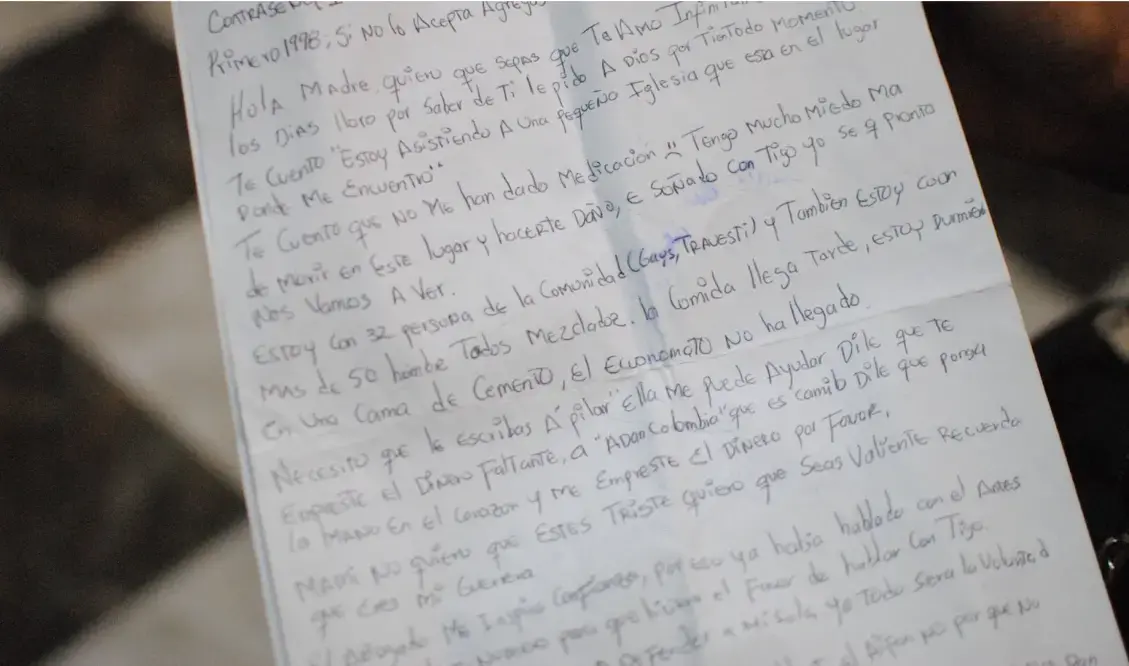 CONTRASE
Primero 1998; Si No lo Acepta Agreg
Hola Madre quiero que sepas que Te Amo Infini
los Dias lloro por Saber de Ti le pido A Dios por Ti Todo Momento
Te Cuento "Estoy Asistiendo A una pequeño Iglesia que esta en el lugar
Donde Me Encuentro"
Te Cuento que No Me han dado Medicación Tengo Mucho Miedo Ma
de Morir En Este lugar y hacerte Daño, E Soñado Con Tigo yo se q pronto
Nos Vamos A Ver.
Estoy Con 32 persona de la Comunidad (Gays, TRAVESTI) y También Estoy Coon
Mas de 50 hombe Todos Mezclados. la Comida llega Tarde, Estoy Durmien
En Una Cama de Cemento, El Economato No ha llegado.
Necesito que le Escribas A "pilar" Ella Me puede Ayudar Dile que TE
Empreste el Dinero Faltante, a "ADAN Colombia" que es camib Dile que ponga
la Mano En el Corazon y Me Empreste El Dinero por Favor.
Mami No quiero que Estes Triste quiero que Seas Valiente Recuerda
que Eres Mi Guerrera
El Abogado Me Confianza, por eso ya habia hablado con el Antes
para que hiciera el Favor de hablar Con Tigo.
Defender a yo Todo Sera la Voluntad
por que No